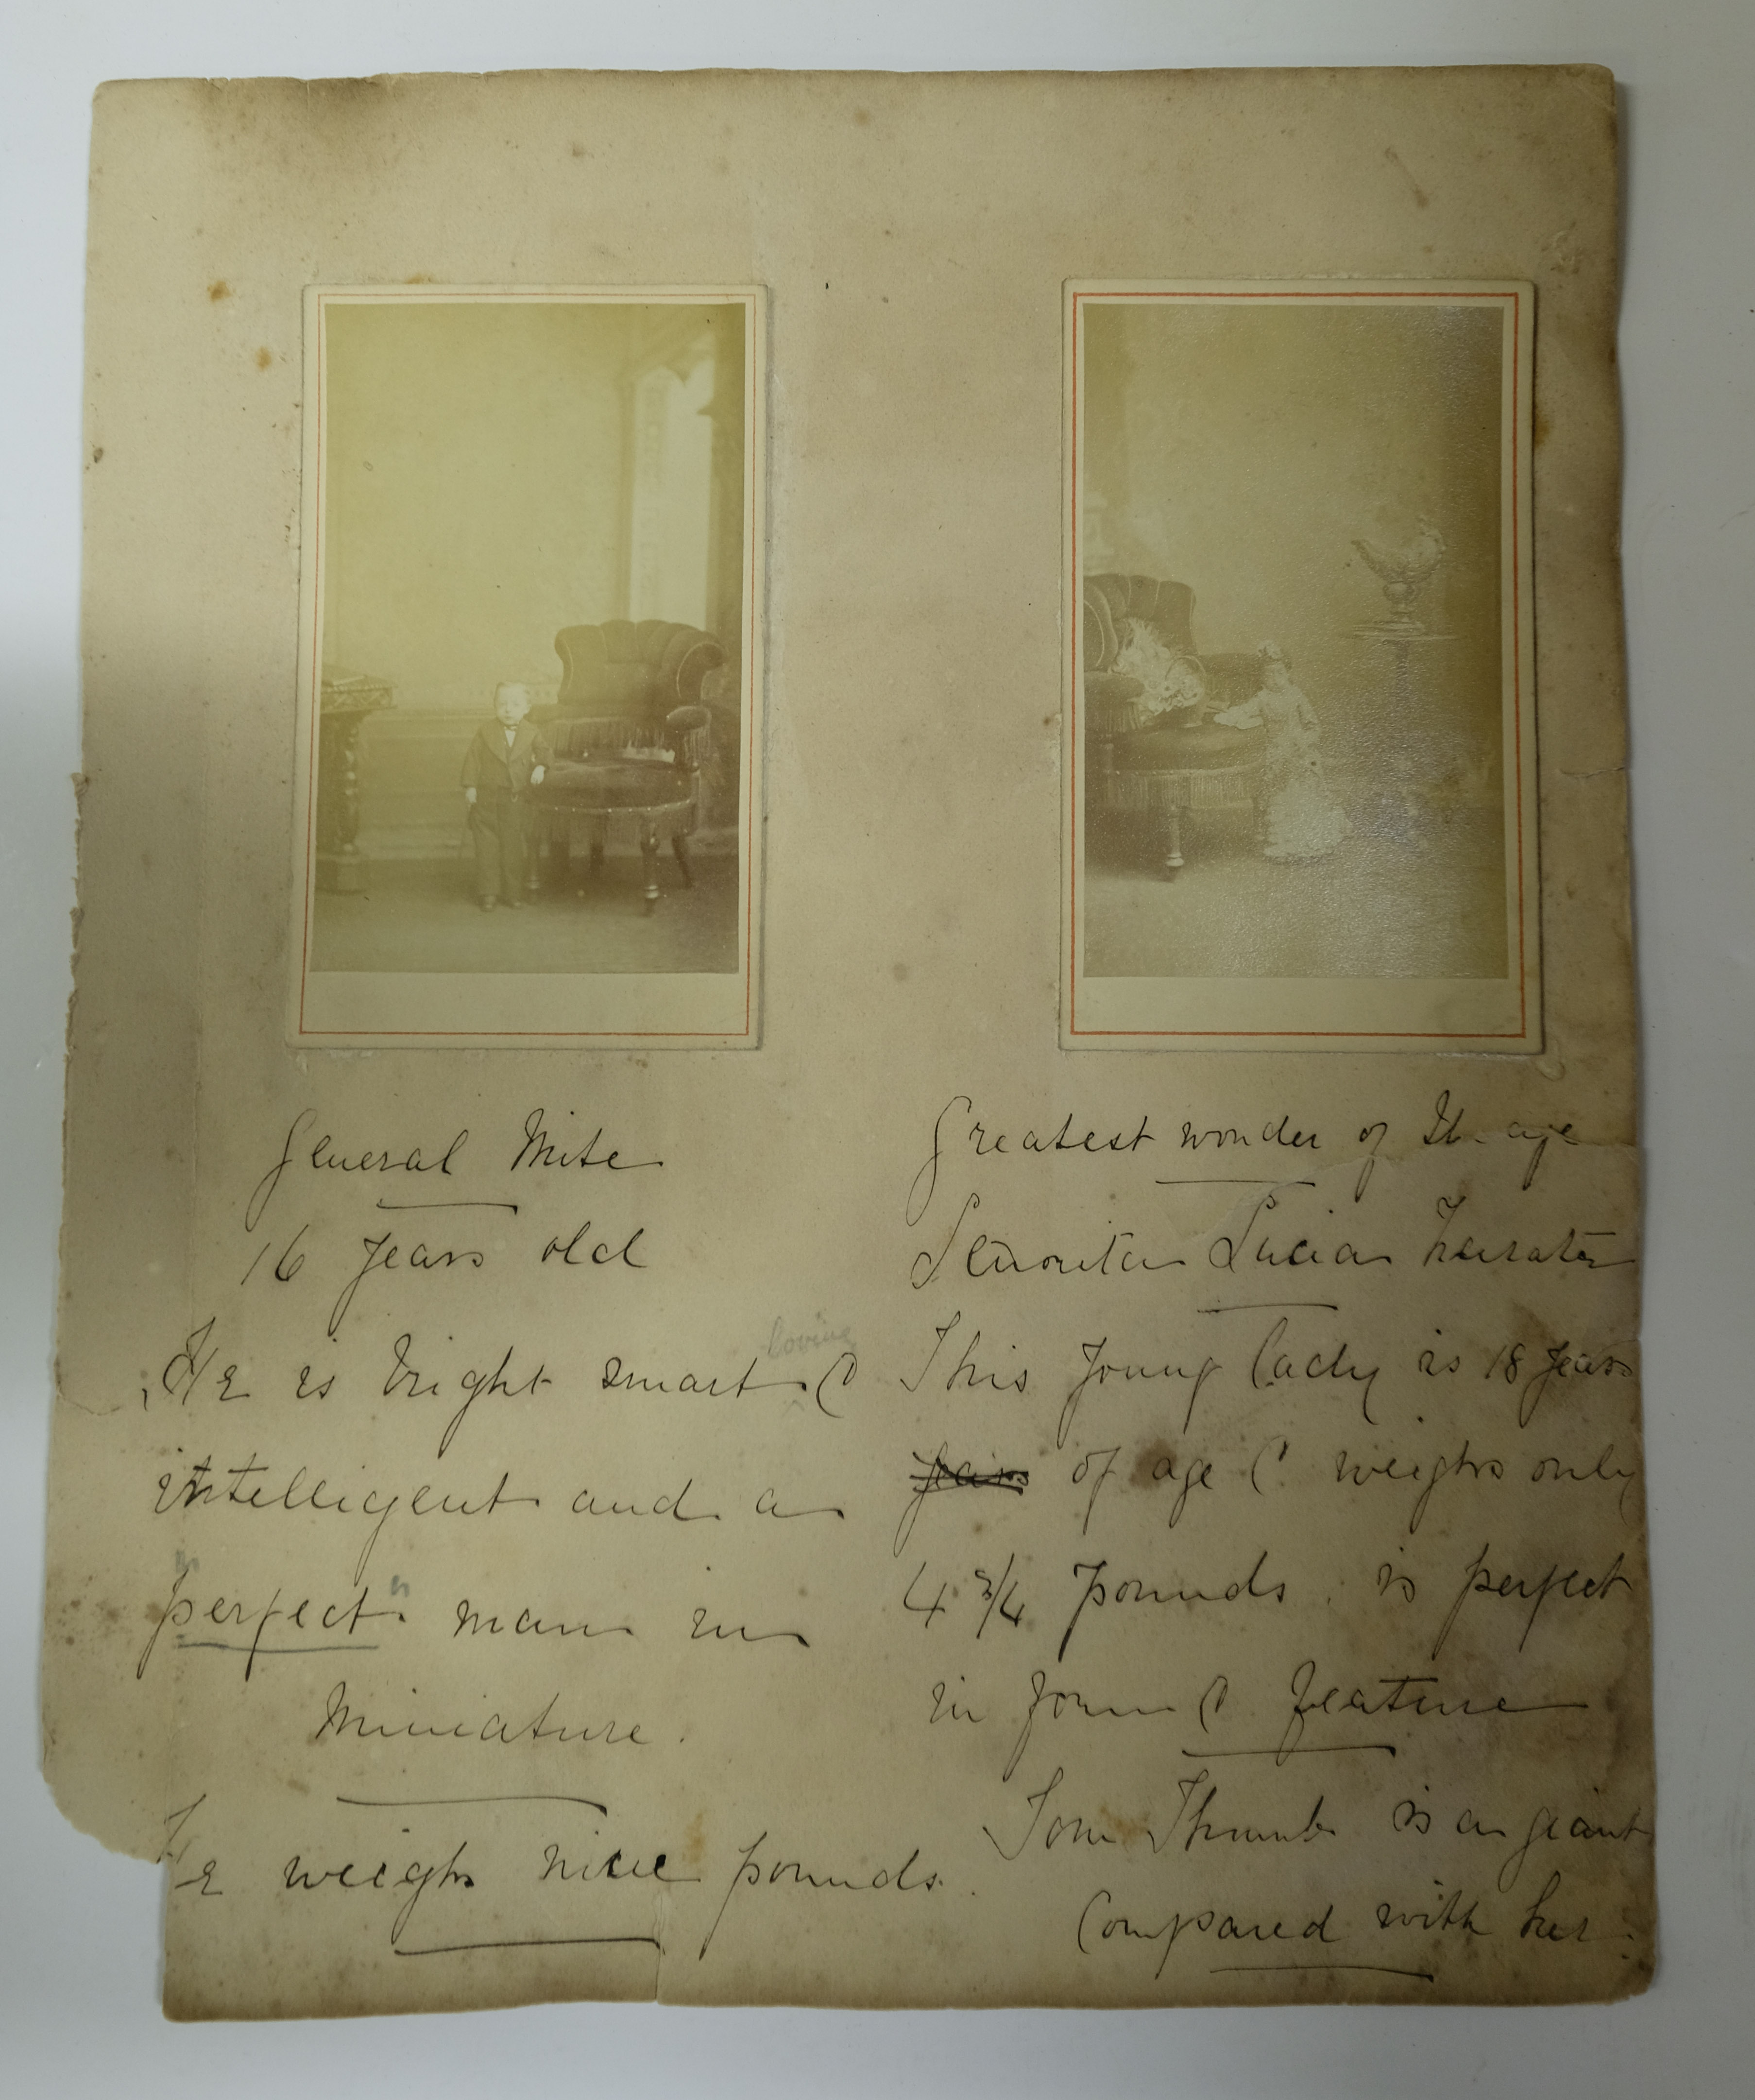 General Mite
16 years old
He is bright smart loving &
intelligent and a
"perfect" man in
Miniature.
He weighs nine pounds.
Greatest wonder of the age
Senorita Lucia Zarate
This young lady is 18 years
years of age & weighs only
4 3/4 pounds. is perfect
in form & feature
Tom Thumb is a giant
Compared with her.